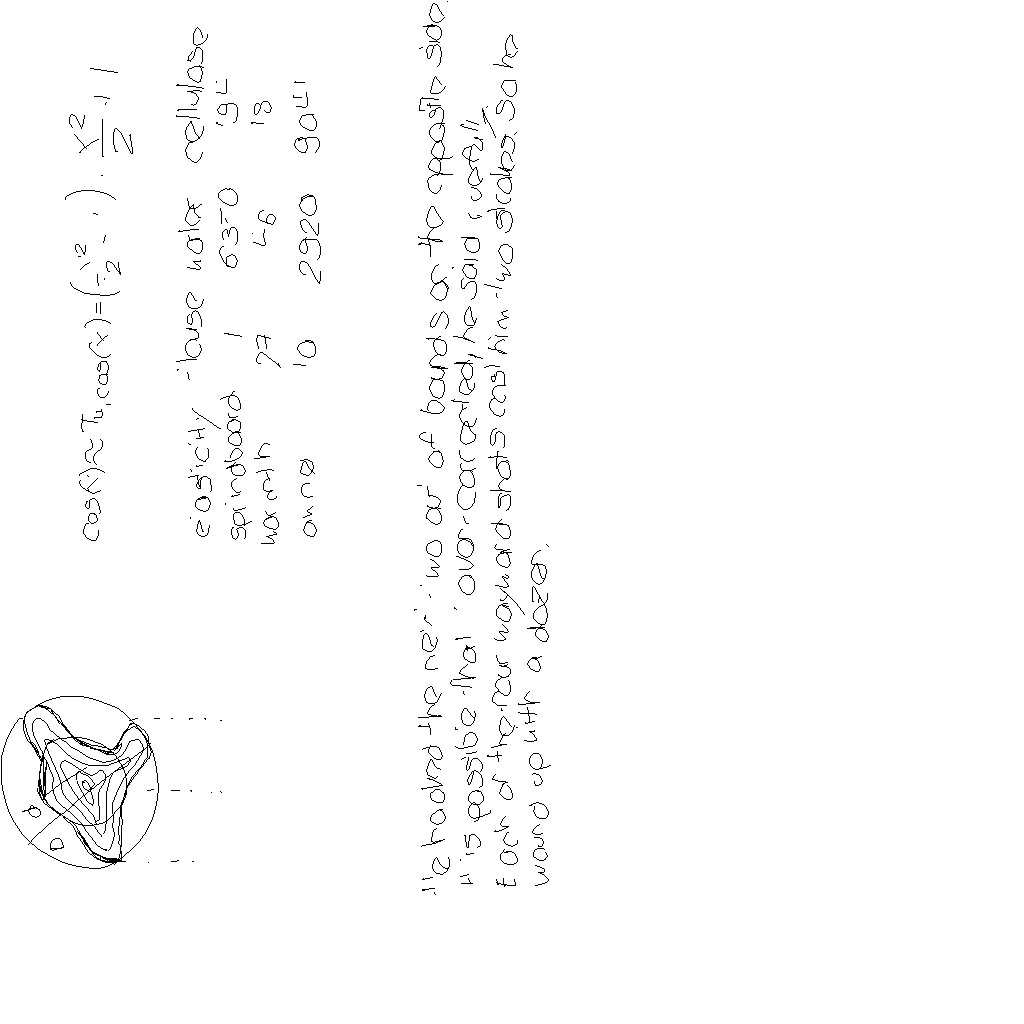 cos(x) ≈ T4,cos(x) = ( x² / 2 - 1 ) · x² / 2 + 1
elasticity louse cellulose
1 6370 194
worth 77 46 18
10 2920 9041
He hooked the next two out of bounds on the opposite side.
"It is possible that I over-corrected," he said ruefully.
Each of the four wayward shots cost him two strokes, so he
wound up with a dozen.